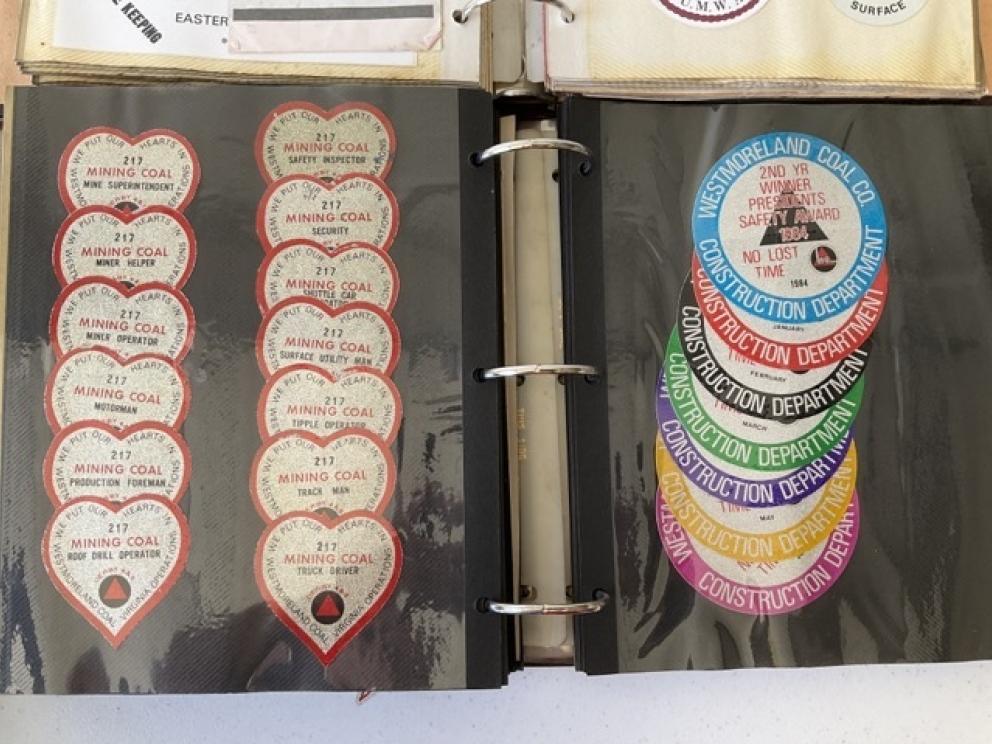 KEEPING
EASTER
U.M.W.
SURFACE
WE PUT OUR HEARTS IN
217
MINING COAL
MINE SUPERINTENDENT
WE PUT OUR HEARTS IN
217
MINING COAL
MINER HELPER
WE PUT OUR HEARTS IN
217
MINING COAL
MINER OPERATOR
WE PUT OUR HEARTS IN
217
MINING COAL
MOTORMAN
WE PUT OUR HEARTS IN
217
MINING COAL
PRODUCTION FOREMAN
WE PUT OUR HEARTS IN
217
MINING COAL
ROOF DRILL OPERATOR
WESTMORELAND COAL VIRGINIA OPERATIONS
WE PUT OUR HEARTS IN
217
MINING COAL
SAFETY INSPECTOR
WE PUT OUR HEARTS IN
217
MINING COAL
SECURITY
WE PUT OUR HEARTS IN
217
MINING COAL
SHUTTLE CAR
WE PUT OUR HEARTS IN
217
MINING COAL
SURFACE UTILITY MAN
WE PUT OUR HEARTS IN
217
MINING COAL
TIPPLE OPERATOR
WE PUT OUR HEARTS IN
217
MINING COAL
TRACK MAN
WE PUT OUR HEARTS IN
217
MINING COAL
TRUCK DRIVER
WESTMORELAND COAL VIRGINIA OPERATIONS
WESTMORELAND COAL CO.
2ND YR
WINNER
PRESIDENTS
SAFETY AWARD
1984
NO LOST
TIME
1984
CONSTRUCTION DEPARTMENT
JANUARY
CONSTRUCTION DEPARTMENT
TIME
FEBRUARY
CONSTRUCTION DEPARTMENT
MARCH
CONSTRUCTION DEPARTMENT
CONSTRUCTION DEPARTMENT
TIME
MAY
CONSTRUCTION DEPARTMENT
WESTM
CONSTRUCTION DEPART